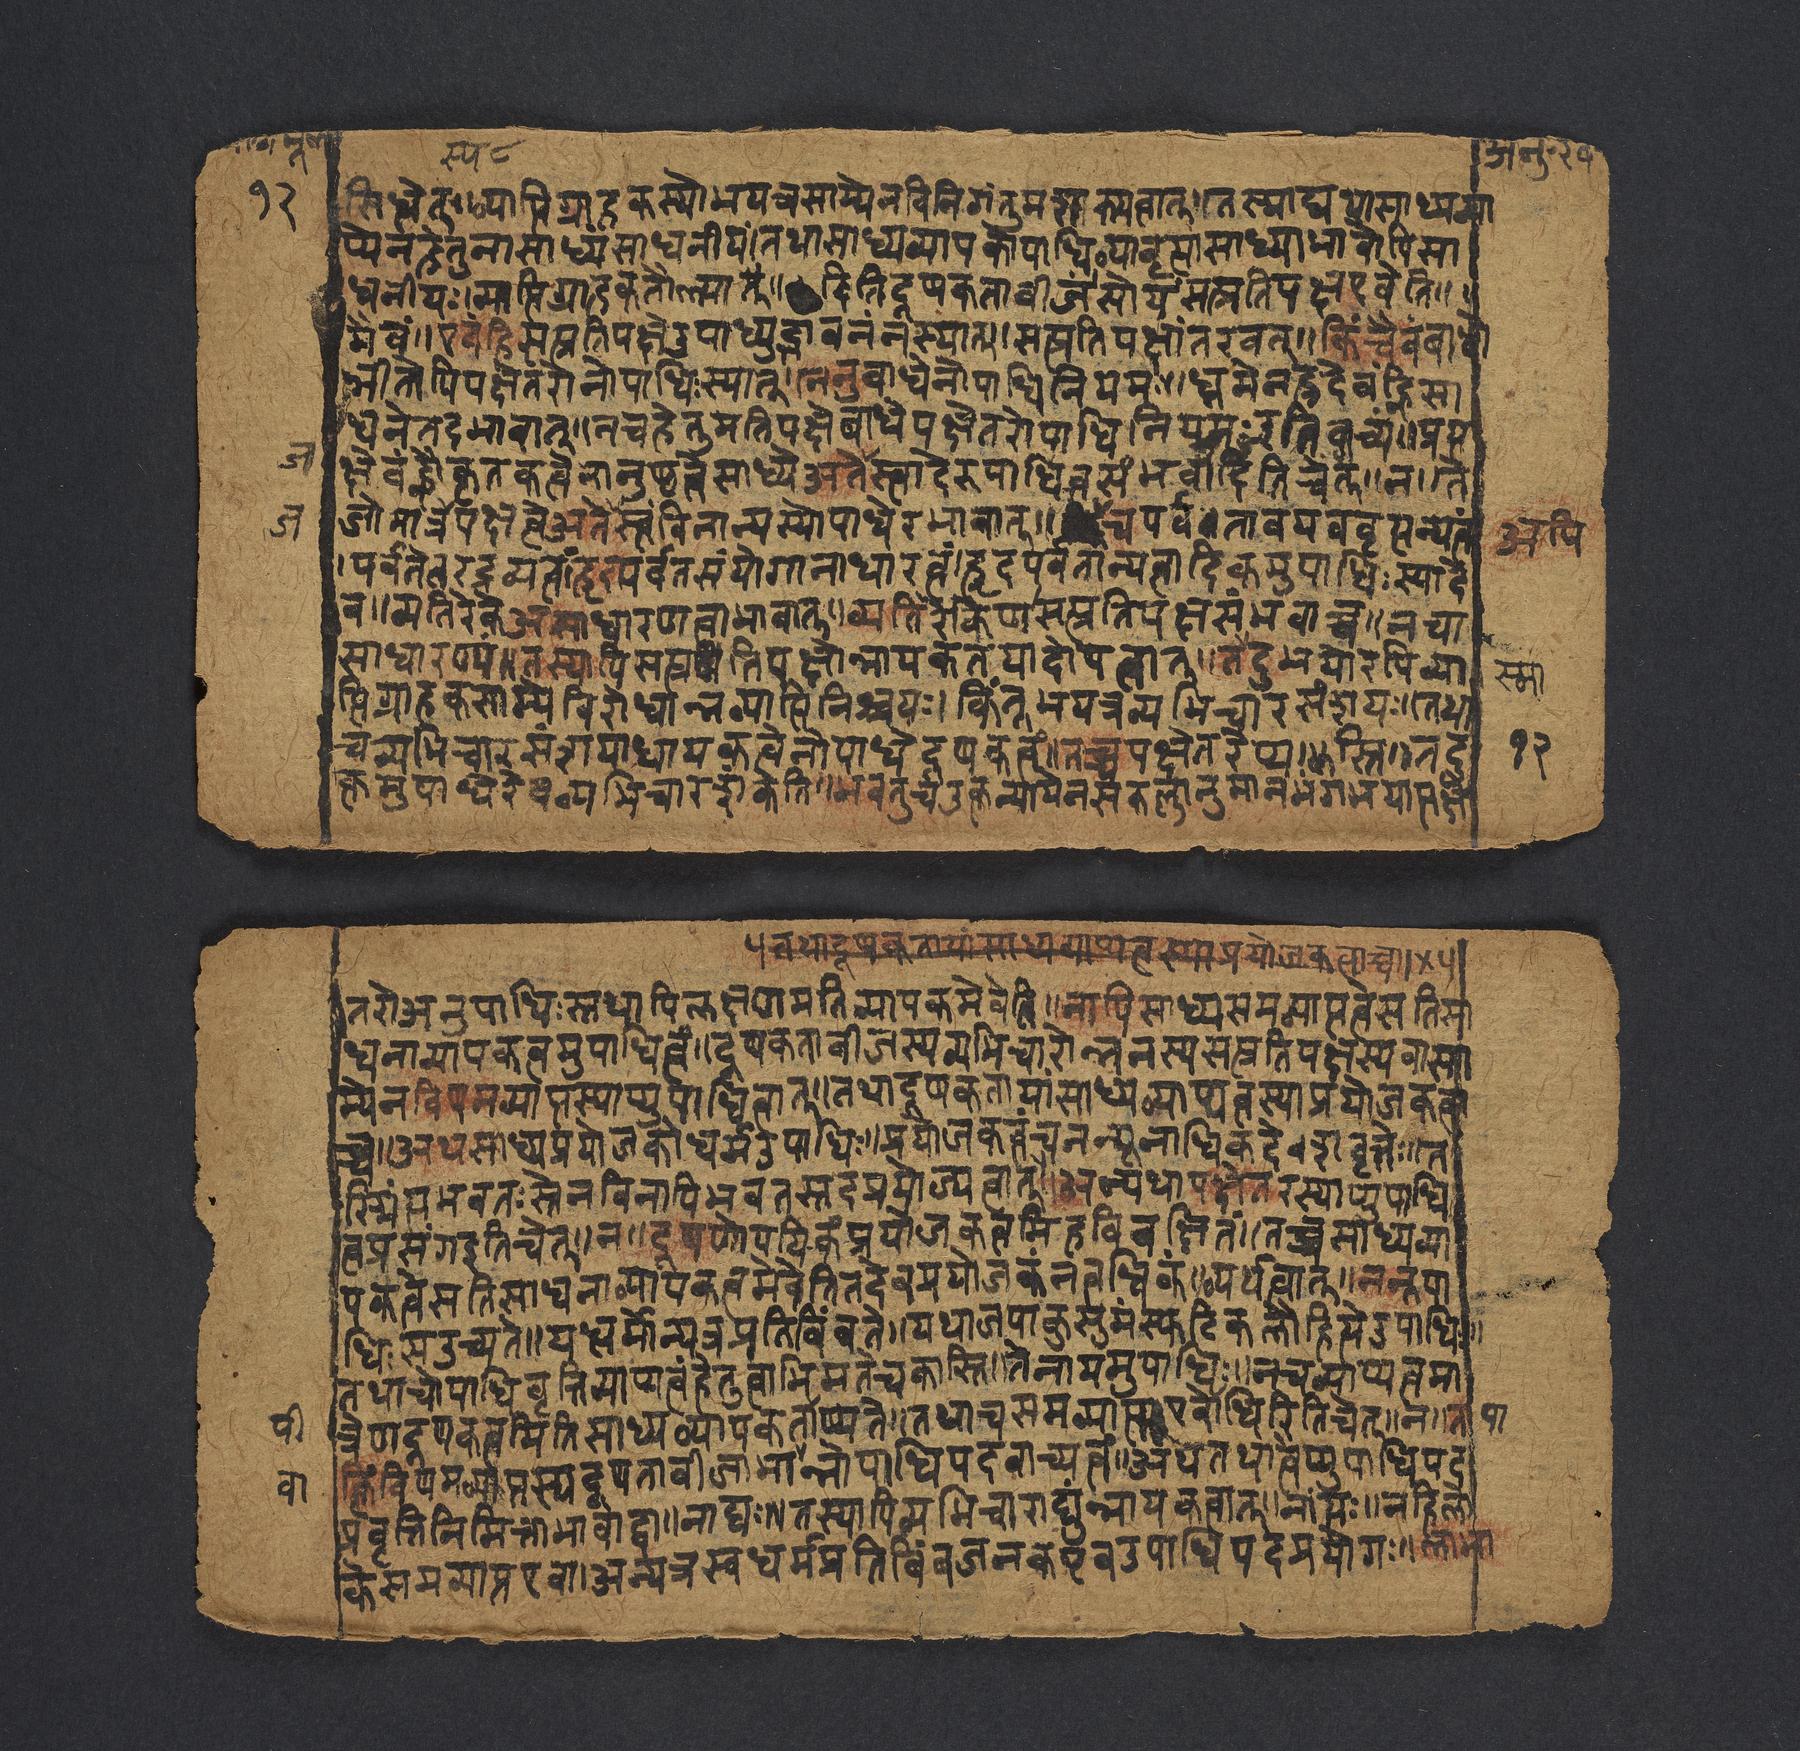 १२
सिध्येत्॥व्याप्तिग्राहकस्योभयत्रसाम्येनविनिगंतुमशक्यत्वात्।तस्माद्यथासाध्यव्या
प्येनहेतुनासाध्यंसाधनीयं।तथासाध्यव्यापकोपाधिव्यावृत्यासाध्याभावोपिसा
धनीयः।व्याप्तिग्राहकतौल्यात्॥दितिदूषकताबीजंसोयंसत्प्रतिपक्षएवेति॥
मैवं॥एवंहिसत्प्रतिपक्षेउपाध्युद्भावनंनस्यात्।सत्प्रतिपक्षांतरवत्॥किंचैवंबाधो
न्नीतोपिपक्षेतरोनोपाधिःस्यात्।ननुबाधेनोपाधिनियमः॥धूमेनह्रदेवंह्निसा
धनेतदभावात्॥नचहेतुमतिपक्षेबाधेपक्षेतरोपाधिनियमःइतिवाच्यं॥प्रत्य
क्षेवंह्नौकृतकत्वेनानुष्णत्वेसाध्येअतेजस्त्वादेरुपाधित्वसंभवादितिचेत्॥न।ते
जोमात्रपक्षत्वेअतेजस्त्वंविनान्यस्योपाधेरभावात्॥
अपि
पर्वतेतरद्रव्यत्वं।ह्रदपर्वतसंयोगानाधारत्वं।ह्रदपर्वतान्यत्वादिकमुपाधिःस्यादे
व॥व्यतिरेकेअसाधारणत्वाभावात्॥व्यतिरेकिणासत्प्रतिपक्षसंभवाच्च॥नचा
साधारण्यं॥तस्यापिसत्प्रतिपक्षोत्थापकतयादोषत्वात्।तदुभयोरपिव्या
प्तिग्राहकसाम्येविरोधान्नव्याप्तिनिश्चयः।किंतूभयत्रव्यभिचारसंशयः।तथा
चव्यभिचारसंशयाधायकत्वेनोपाधेदूषकत्वं॥तच्चपक्षेतरेप्यस्ति॥तदु
१२
क्तमुपाधेरेवव्यभिचारशंकेति॥भवतुर्चउक्तन्यायेनसकलानुमानभंगभयात्पक्षे
तथादूषकतायांसाध्यव्याप्यत्वस्याप्रयोजकत्वाच्च।
तरोअनुपाधिःस्तथापिलक्षणमतिव्यापकमेवेति॥नापिसाध्यसमव्याप्तत्वेसतिसा
धनाव्यापकत्वमुपाधित्वं॥दूषकताबीजस्यव्यभिचारोन्नतनस्यसत्प्रतिपक्षस्यवासा
म्येनविषमव्याप्तस्याप्युपाधित्वात्॥तथादूषकतायांसाध्यव्याप्यत्वस्याप्रयोजकत्वा
च्च॥अथसाध्यप्रयोजकोधर्मउपाधिः॥प्रयोजकत्वंचनन्यूनाधिकदेशवृत्तेः॥त
स्मिन्नभवतःस्तेनविनापिभवतस्तदप्रयोज्यत्वात्॥अन्यथापक्षेतरस्याप्युपाधि
त्वप्रसंगइतिचेत्॥न॥दूषणौपयिकंप्रयोजकत्वमिहविवक्षितं।तच्चसाध्यव्या
पकत्वेसतिसाधनाव्यापकत्वमेवेतितदेवप्रयोजकंनत्वधिकं॥व्यर्थत्वात्॥ननूपा
धिःसउच्यते॥यधर्मोन्यत्रप्रतिबिंबते॥यथाजपाकुसुमंस्फटिकलौहित्येउपाधिः॥
तथाचोपाधिवृत्तिव्याप्यत्वंहेतुत्वाभिमतेचकास्ति।तेनायमुपाधिः॥नचव्याप्यत्वमा
त्रेणदूषकत्वमितिसाध्यव्यापकताप्यते॥तथाचसमव्याप्तएवोपाधिरितिचेत्॥न॥
त्किंविषमव्याप्तस्यदूषताबीजाभावान्नोपाधिपदवाच्यत्वं॥अथतथात्वेप्युपाधिपद
प्रवृत्तिनिमित्ताभावाद्वा॥नाद्यः॥तस्यापिव्यभिचाराद्युन्नायकत्वात्॥नांत्यः॥नहिलो
केसमव्याप्तएवा।अन्यत्रस्वधर्मप्रतिबिंबजनकएवउपाधिपदप्रयोगः।लाभा